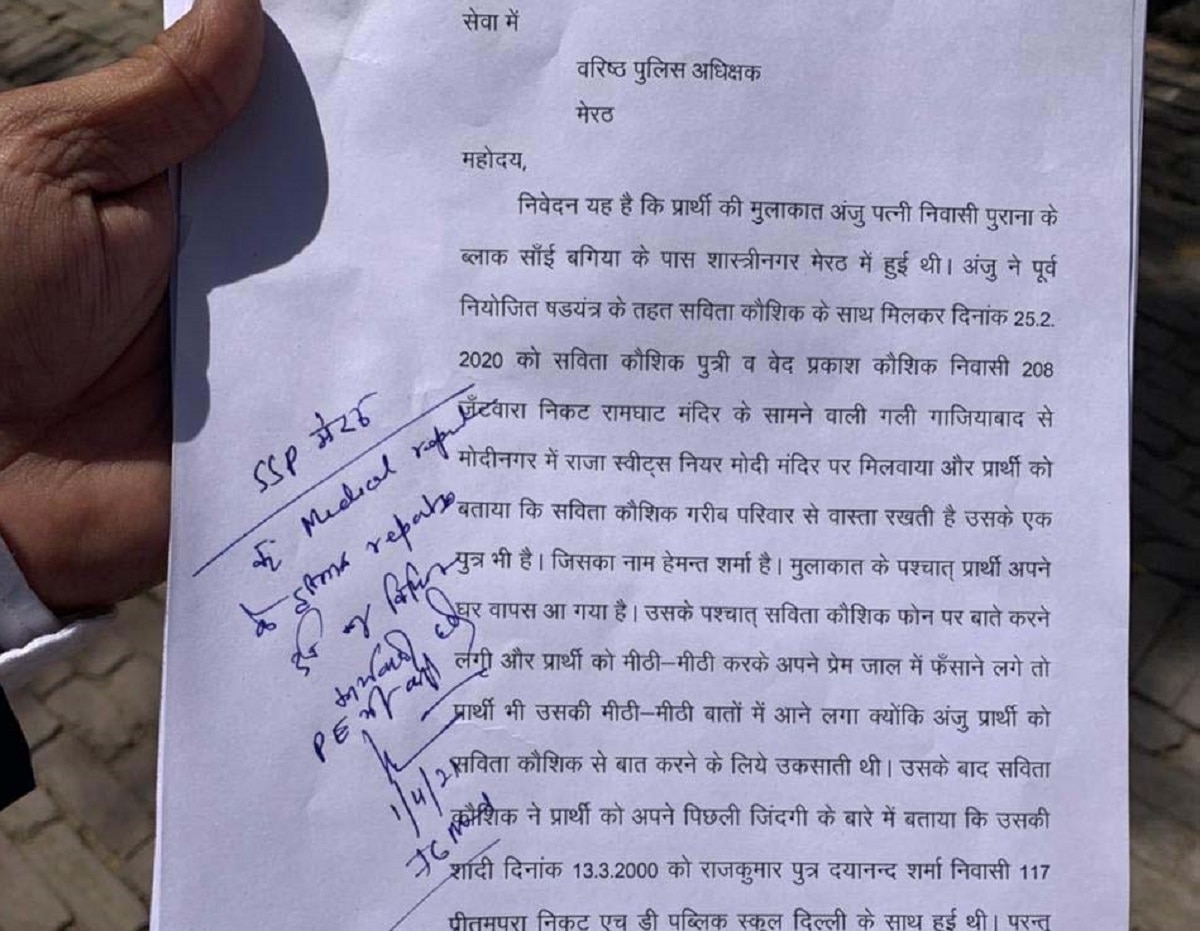 सेवा में
वरिष्ठ पुलिस अधिक्षक
मेरठ
महोदय,
निवेदन यह है कि प्रार्थी की मुलाकात अंजु पत्नी निवासी पुराना के
ब्लाक साँई बगिया के पास शास्त्रीनगर मेरठ में हुई थी। अंजु ने पूर्व
नियोजित षडयंत्र के तहत सविता कौशिक के साथ मिलकर दिनांक 25.2.
2020 को सविता कौशिक पुत्री व वेद प्रकाश कौशिक निवासी 208
जँटवारा निकट रामघाट मंदिर के सामने वाली गली गाजियाबाद से
मोदीनगर में राजा स्वीट्स नियर मोदी मंदिर पर मिलवाया और प्रार्थी को
बताया कि सविता कौशिक गरीब परिवार से वास्ता रखती है उसके एक
पुत्र भी है। जिसका नाम हेमन्त शर्मा है। मुलाकात के पश्चात् प्रार्थी अपने
घर वापस आ गया है। उसके पश्चात् सविता कौशिक फोन पर बाते करने
लगी और प्रार्थी को मीठी–मीठी करके अपने प्रेम जाल में फँसाने लगे तो
प्रार्थी भी उसकी मीठी–मीठी बातों में आने लगा क्योंकि अंजु प्रार्थी को
सविता कौशिक से बात करने के लिये उकसाती थी। उसके बाद सविता
कौशिक ने प्रार्थी को अपने पिछली जिंदगी के बारे में बताया कि उसकी
शादी दिनांक 13.3.2000 को राजकुमार पुत्र दयानन्द शर्मा निवासी 117
पीतमपुरा निकट एच डी पब्लिक स्कूल दिल्ली के साथ हुई थी। परन्तु
SSP मेरठ
Medical
के
PE
1/4/21